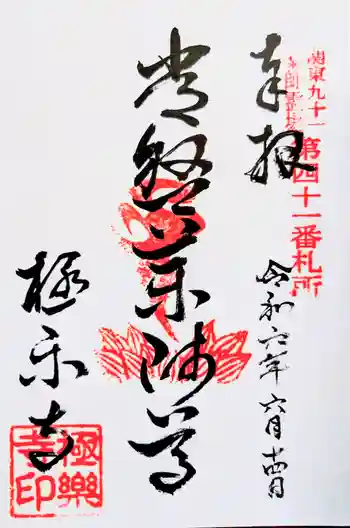 関東九十一
第四十一番札所
奉拝
常盤薬師尊
令和六年六月十四日
極楽寺
極樂
寺印